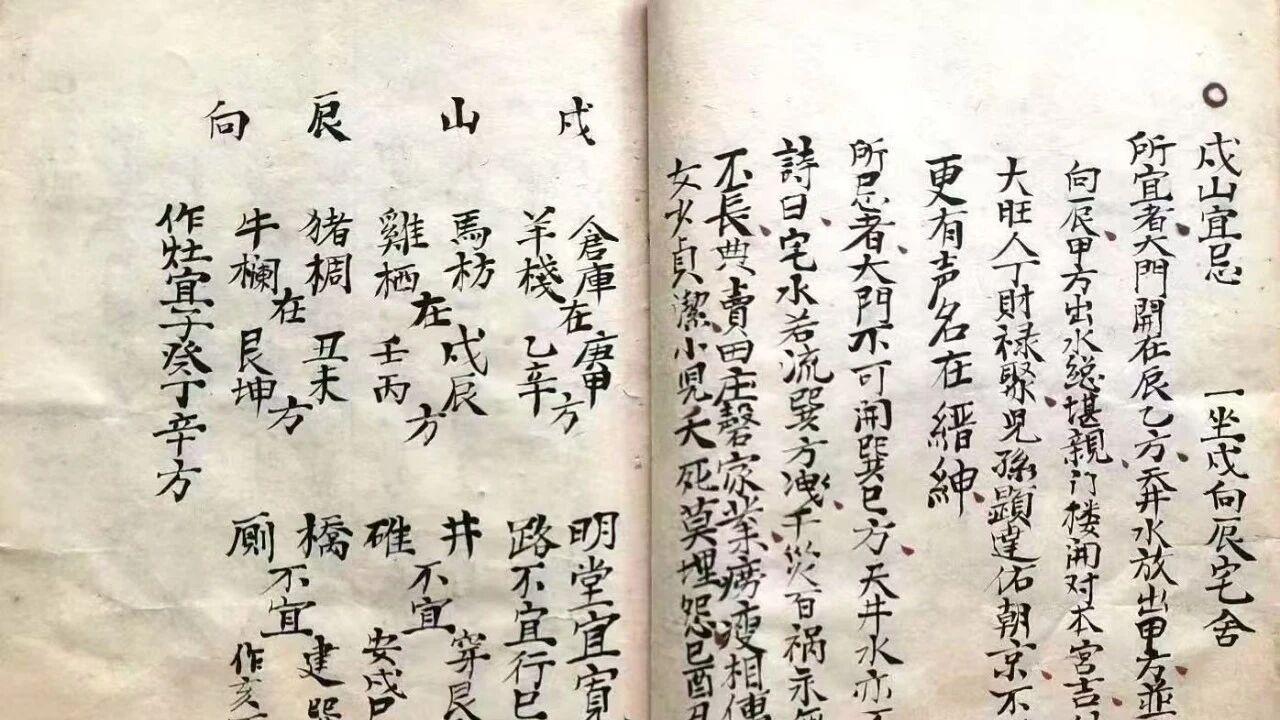 戍山宜忌 一坐戍向辰宅舍
所宜者大門開在辰乙方天井水放出甲方並
向辰甲方出水総堪親门楼開对本宮吉
大旺人丁財禄聚児孫顕達佑朝京不
更有声名在縉紳
所忌者大門不可開巽巳方天井水亦不
詩曰宅水若流巽方洩千災百禍永無
不長典賣田庄磬家業癆瘦相傳
女大貞潔小児夭死莫埋怨巳酉丑
戍山辰向
倉庫在庚甲方
羊棧乙辛
馬枋在戍辰方
雞栖壬丙
猪椆在丑未方
牛欄艮坤
作灶宜子癸丁辛方
明堂宜寛
路不宜行巳
井不宜穿艮
碓安戍
橋不宜建巽
厠作亥